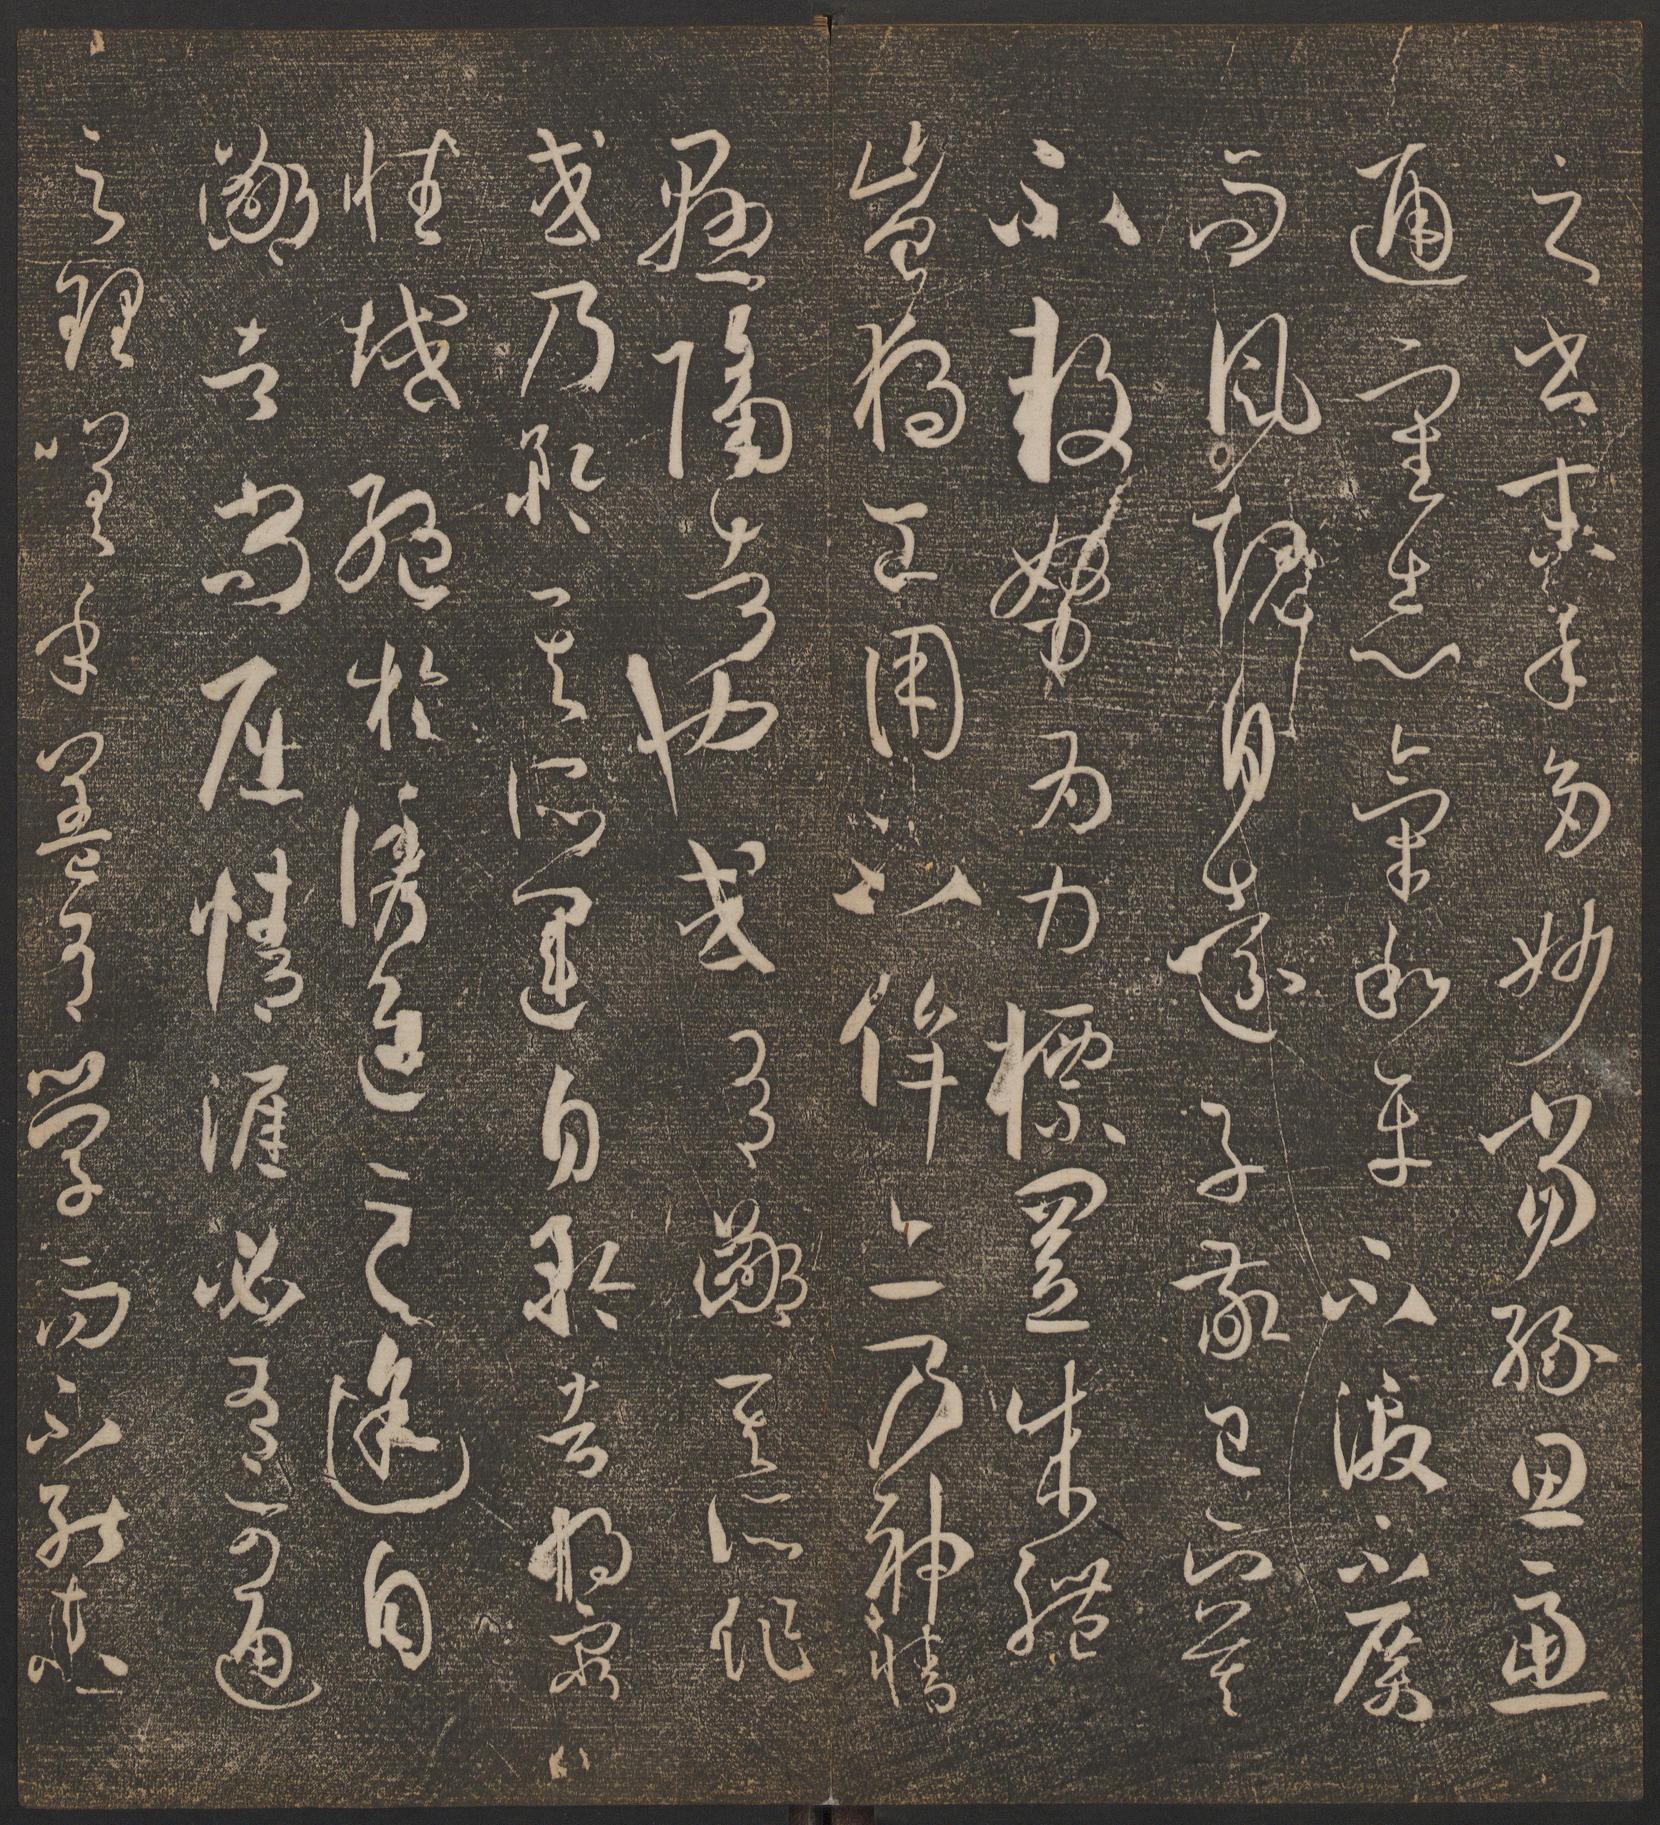 之書末年多妙當緣思慮
通審志氣和平不激不厲
而風規自遠子敬已下莫
不鼓努為力標置成體
豈獨工用不侔亦乃神情
懸隔者也或有鄙其所作
或乃矜其所運自矜者將窮
性域絕於誘進之途自
鄙者尚屈情涯必有可通
之理嗟乎蓋有學而不能未